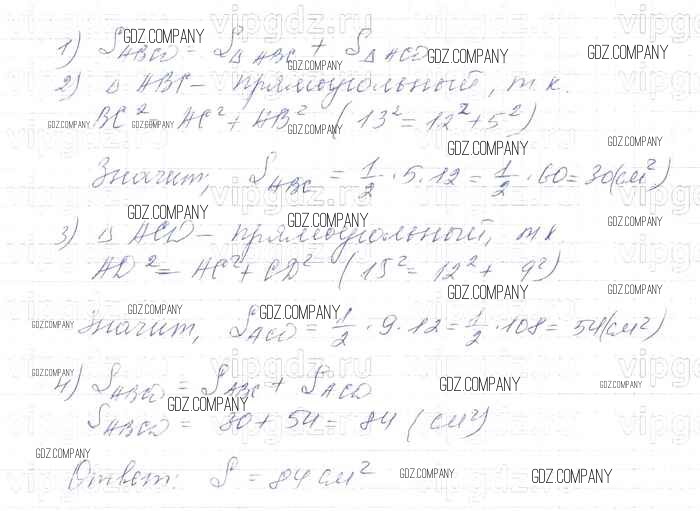 1) S ABCD = S △ ABC + S △ ACD
2) △ ABC - прямоугольный, т.к.
BC² = AC² + AB² (13² = 12² + 5²)
Значит, S ABC = 1/2 · 5 · 12 = 1/2 · 60 = 30 (см²)
3) △ ACD - прямоугольный, т.к.
AD² = AC² + CD² (15² = 12² + 9²)
Значит, S ACD = 1/2 · 9 · 12 = 1/2 · 108 = 54 (см²)
4) S ABCD = S ABC + S ACD
S ABCD = 30 + 54 = 84 (см²)
Ответ: S = 84 см²